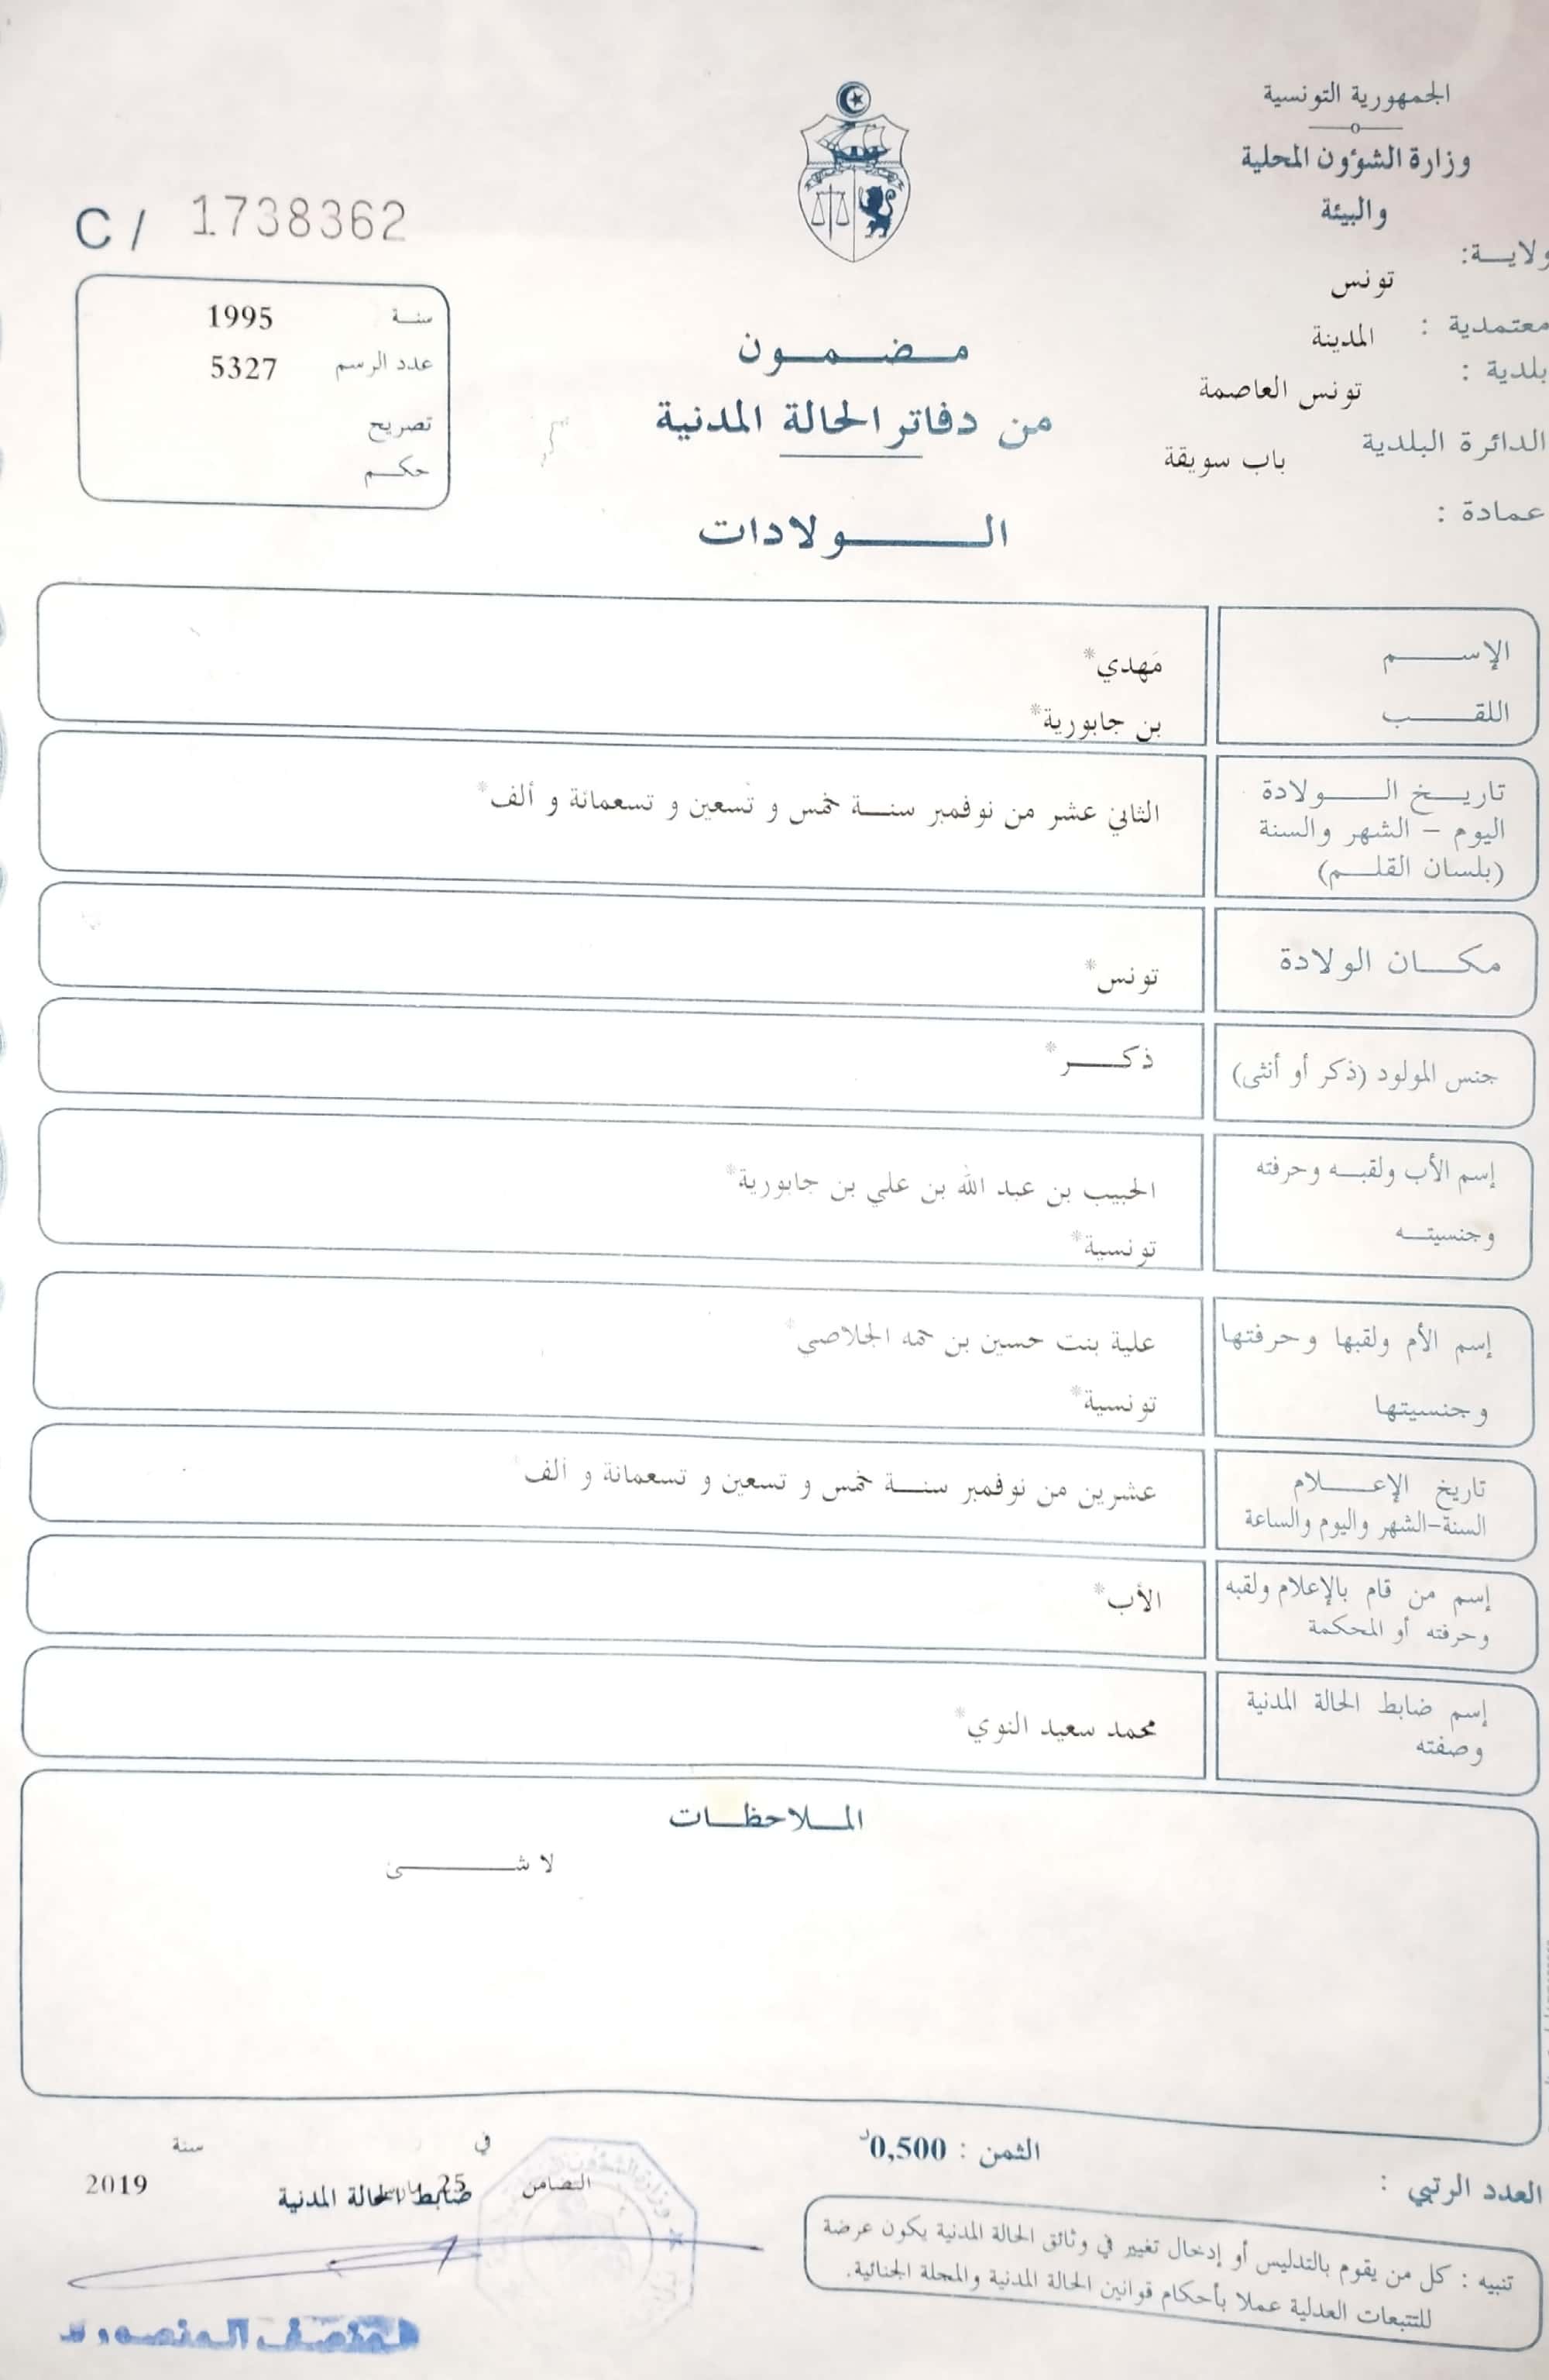 الجمهورية التونسية
وزارة الشؤون المحلية
والبيئة
ولايـــة:
تونس
معتمدية :
المدينة
بلدية :
تونس العاصمة
الدائرة البلدية
باب سويقة
عمادة :
C / 1738362
سنــة 1995
عدد الرسم 5327
تصريح
حكــم
مـضـمـون
من دفاتر الحالة المدنية
الــولادات
الإســـم
مَهدي*
اللقــب
بن جابورية*
تاريــخ الــولادة
اليوم – الشهر والسنة
(بلسان القلــم)
الثاني عشر من نوفمبر سنــة خمس و تسعين و تسعمائة و ألف*
مكــان الولادة
تونس*
جنس المولود (ذكر أو أنثى)
ذكــر*
إسم الأب ولقبــه وحرفته
وجنسيتــه
الحبيب بن عبد الله بن علي بن جابورية*
تونسية*
إسم الأم ولقبها وحرفتها
وجنسيتها
علية بنت حسين بن حمه الجلاصي*
تونسية*
تاريخ الإعــلام
السنة-الشهر واليوم والساعة
عشرين من نوفمبر سنــة خمس و تسعين و تسعمائة و ألف*
إسم من قام بالإعلام ولقبه
وحرفته أو المحكمة
الأب*
إسم ضابط الحالة المدنية
وصفته
محمد سعيد النوي*
المــلاحظــات
لا شــــئ
الثمن : 0,500د
العدد الرتبي :
تنبيه : كل من يقوم بالتدليس أو إدخال تغيير في وثائق الحالة المدنية يكون عرضة
للتتبعات العدلية عملا بأحكام قوانين الحالة المدنية والمجلة الجنائية.
في سنة
التضامن 25 مارس 2019
ضابط الحالة المدنية
وزارة الشؤون
المنصف المنصوري